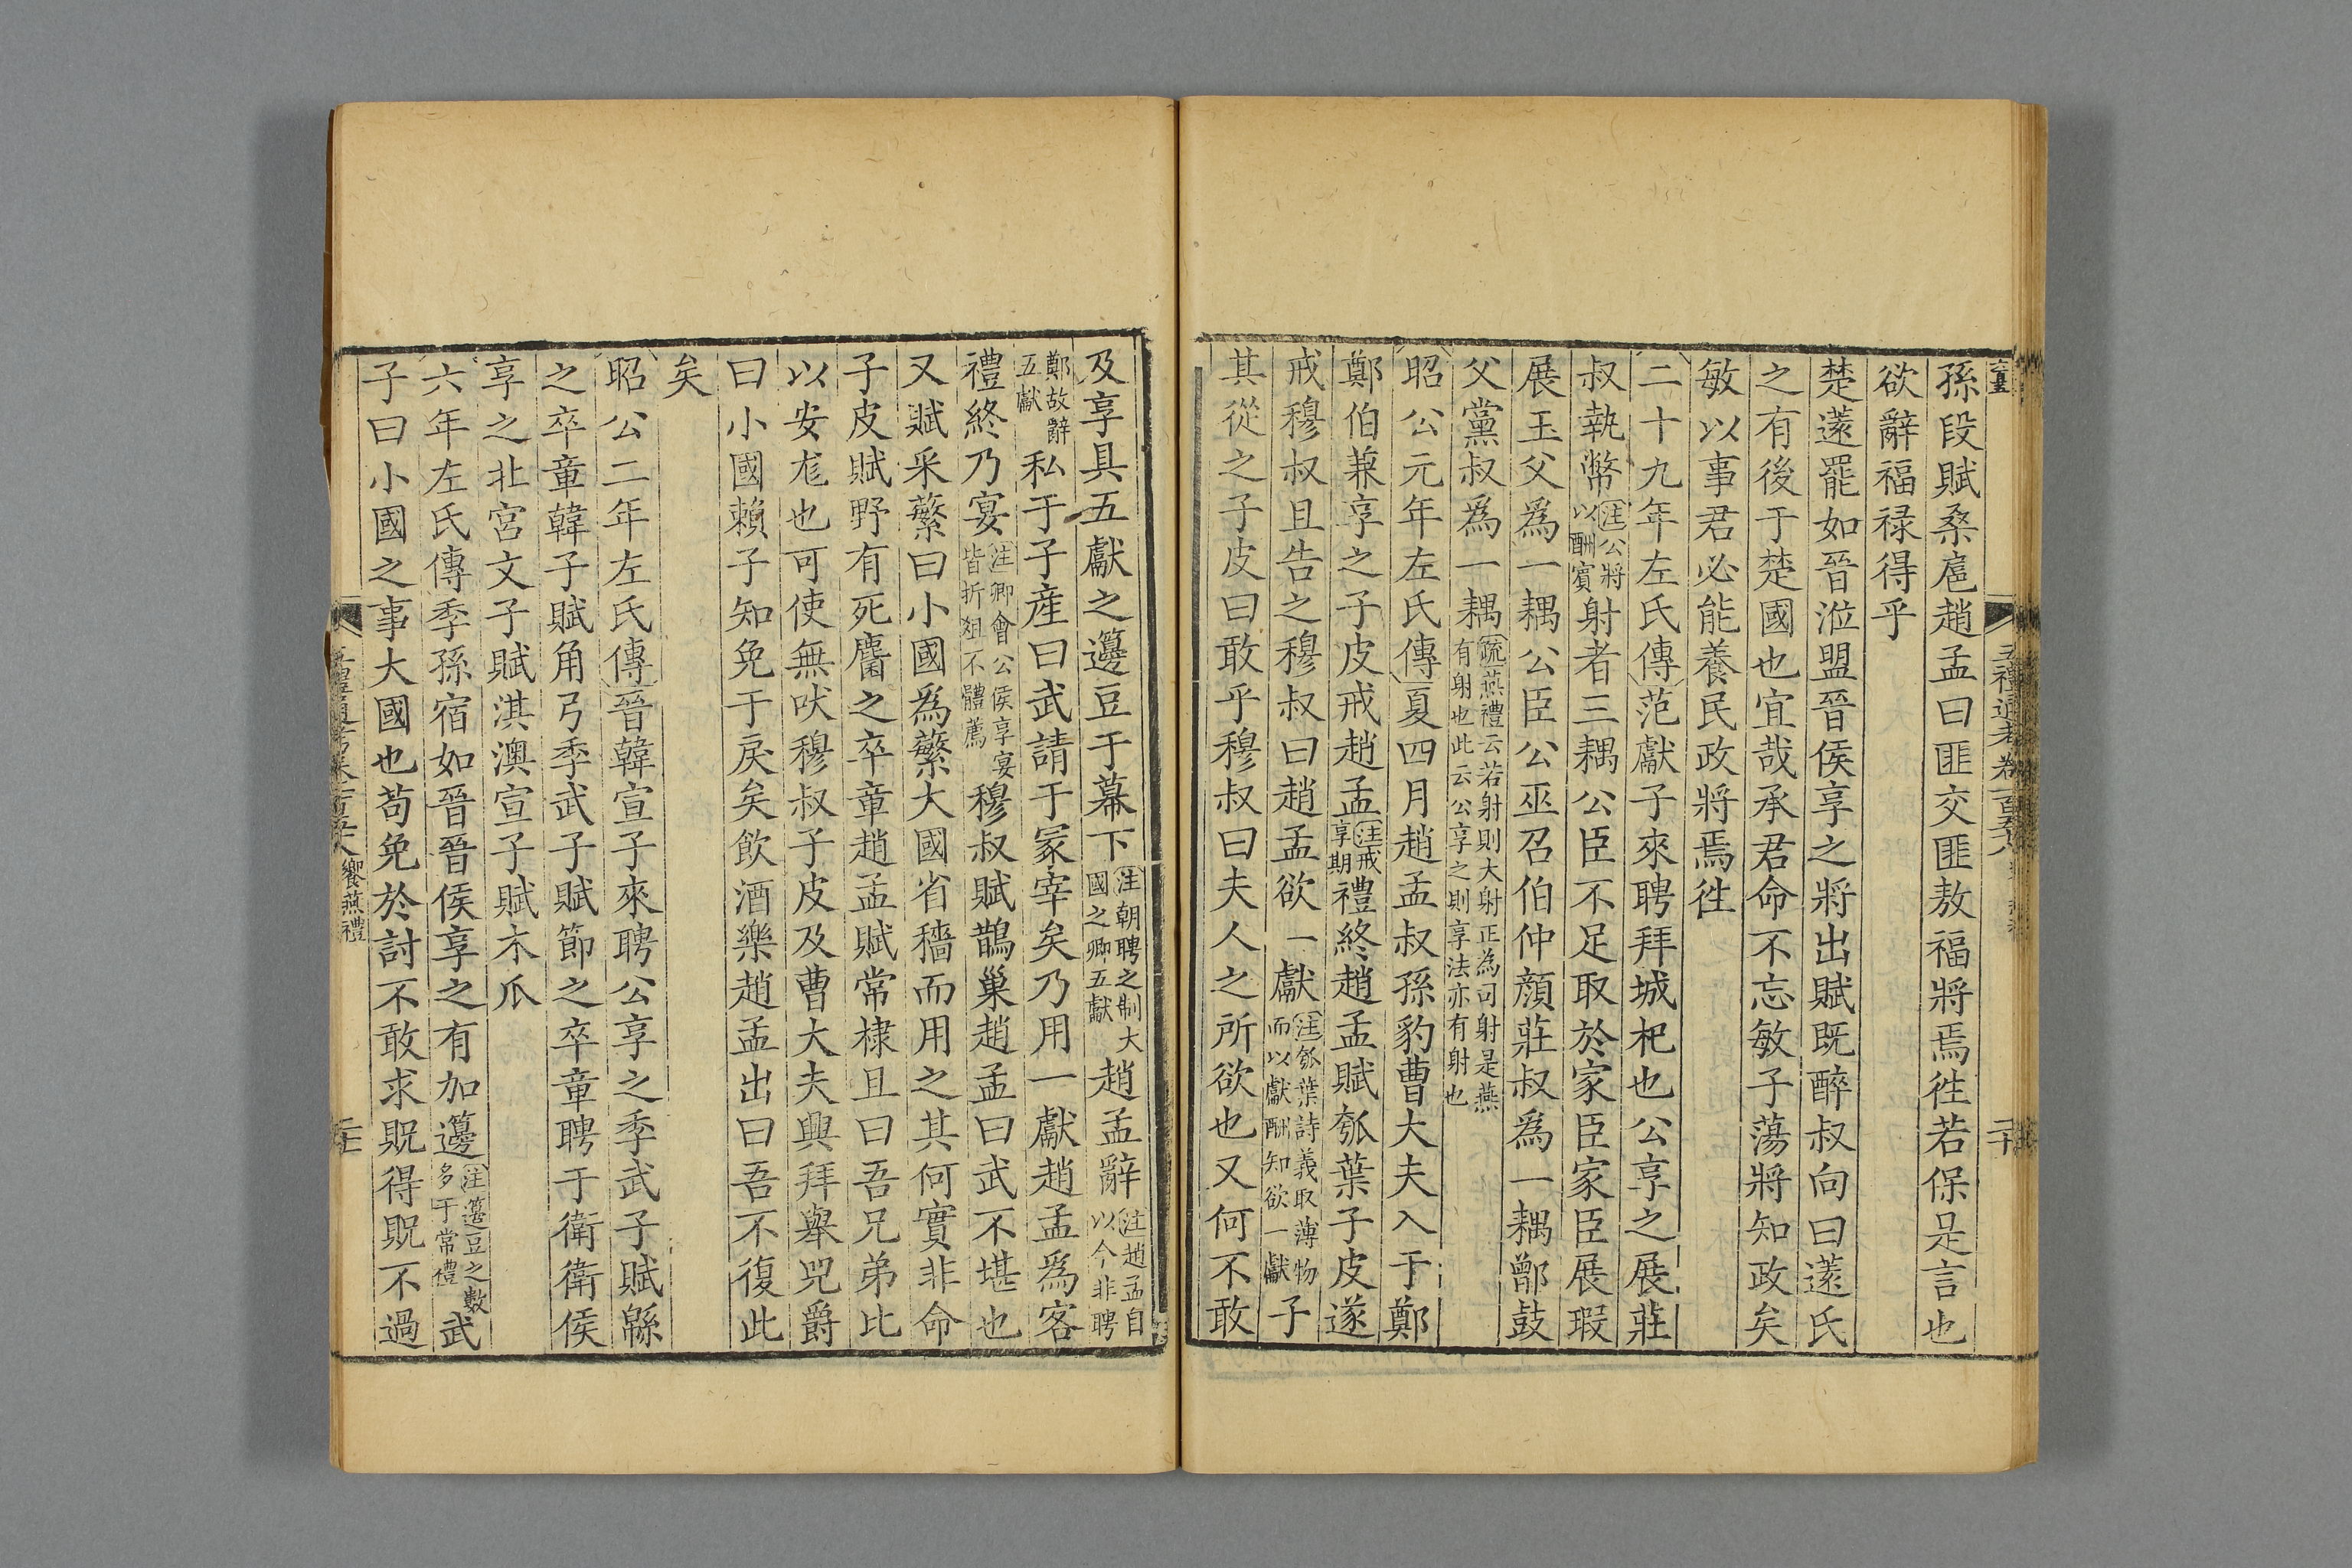 孫段賦桑扈趙孟曰匪交匪敖福將焉徃若保是言也
欲辭福禄得乎
楚薳罷如晉涖盟晉侯享之將出賦既醉叔向曰薳氏
之有後于楚國也宜哉承君命不忘敏子蕩將知政矣
敏以事君必能養民政將焉徃
二十九年左氏傳范獻子來聘拜城杞也公享之展莊
叔執幣注公將以酬賓射者三耦公臣不足取於家臣家臣展瑕
展玉父爲一耦公臣公巫召伯仲顔莊叔爲一耦鄫鼓
父黨叔爲一耦疏燕禮云若射則大射正為司射是燕有射也此云公享之則享法亦有射也
昭公元年左氏傳夏四月趙孟叔孫豹曹大夫入于鄭
鄭伯兼享之子皮戒趙孟注戒享期禮終趙孟賦瓠葉子皮遂
戒穆叔且告之穆叔曰趙孟欲一獻注瓠葉詩義取薄物而以獻酬知欲一獻子
其從之子皮曰敢乎穆叔曰夫人之所欲也又何不敢
五禮通考卷一百五十八
二十
及享具五獻之籩豆于幕下注朝聘之制大國之卿五獻趙孟辭注趙孟自以今非聘
鄭故辭五獻私于子産曰武請于冢宰矣乃用一獻趙孟爲客
禮終乃宴注卿會公侯享宴皆折俎不體薦穆叔賦鵲巢趙孟曰武不堪也
又賦采蘩曰小國爲蘩大國省穡而用之其何實非命
子皮賦野有死麕之卒章趙孟賦常棣且曰吾兄弟比
以安尨也可使無吠穆叔子皮及曹大夫興拜舉兕爵
曰小國賴子知免于戾矣飲酒樂趙孟出曰吾不復此
矣
昭公二年左氏傳晉韓宣子來聘公享之季武子賦緜
之卒章韓子賦角弓季武子賦節之卒章聘于衛衛侯
享之北宮文子賦淇澳宣子賦木瓜
六年左氏傳季孫宿如晉晉侯享之有加籩注籩豆之數多于常禮武
子曰小國之事大國也苟免於討不敢求貺得貺不過
五禮通考卷一百五十八 饗燕禮
二十一